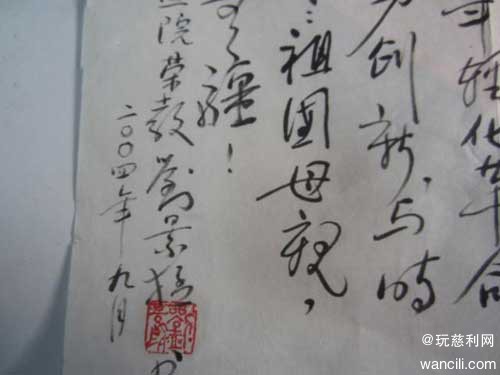 轻化革命
创新、与時
祖國母親，
疆！
院荣教劉景
二〇〇四年九月
@玩慈利网
wancili.com